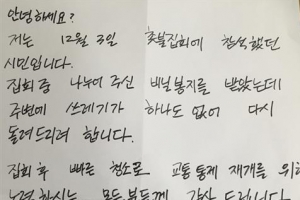 안녕하세요?
저는 12월 3일 촛불집회에 참석했던
시민입니다.
집회 중 나누어 주신 비닐봉지를 받았는데
주변에 쓰레기가 하나도 없어 다시
돌려드리려 합니다.
집회 후 빠른 청소로 교통통제 재개를 위해
노력하시는 모든분들께 감사 드립니다